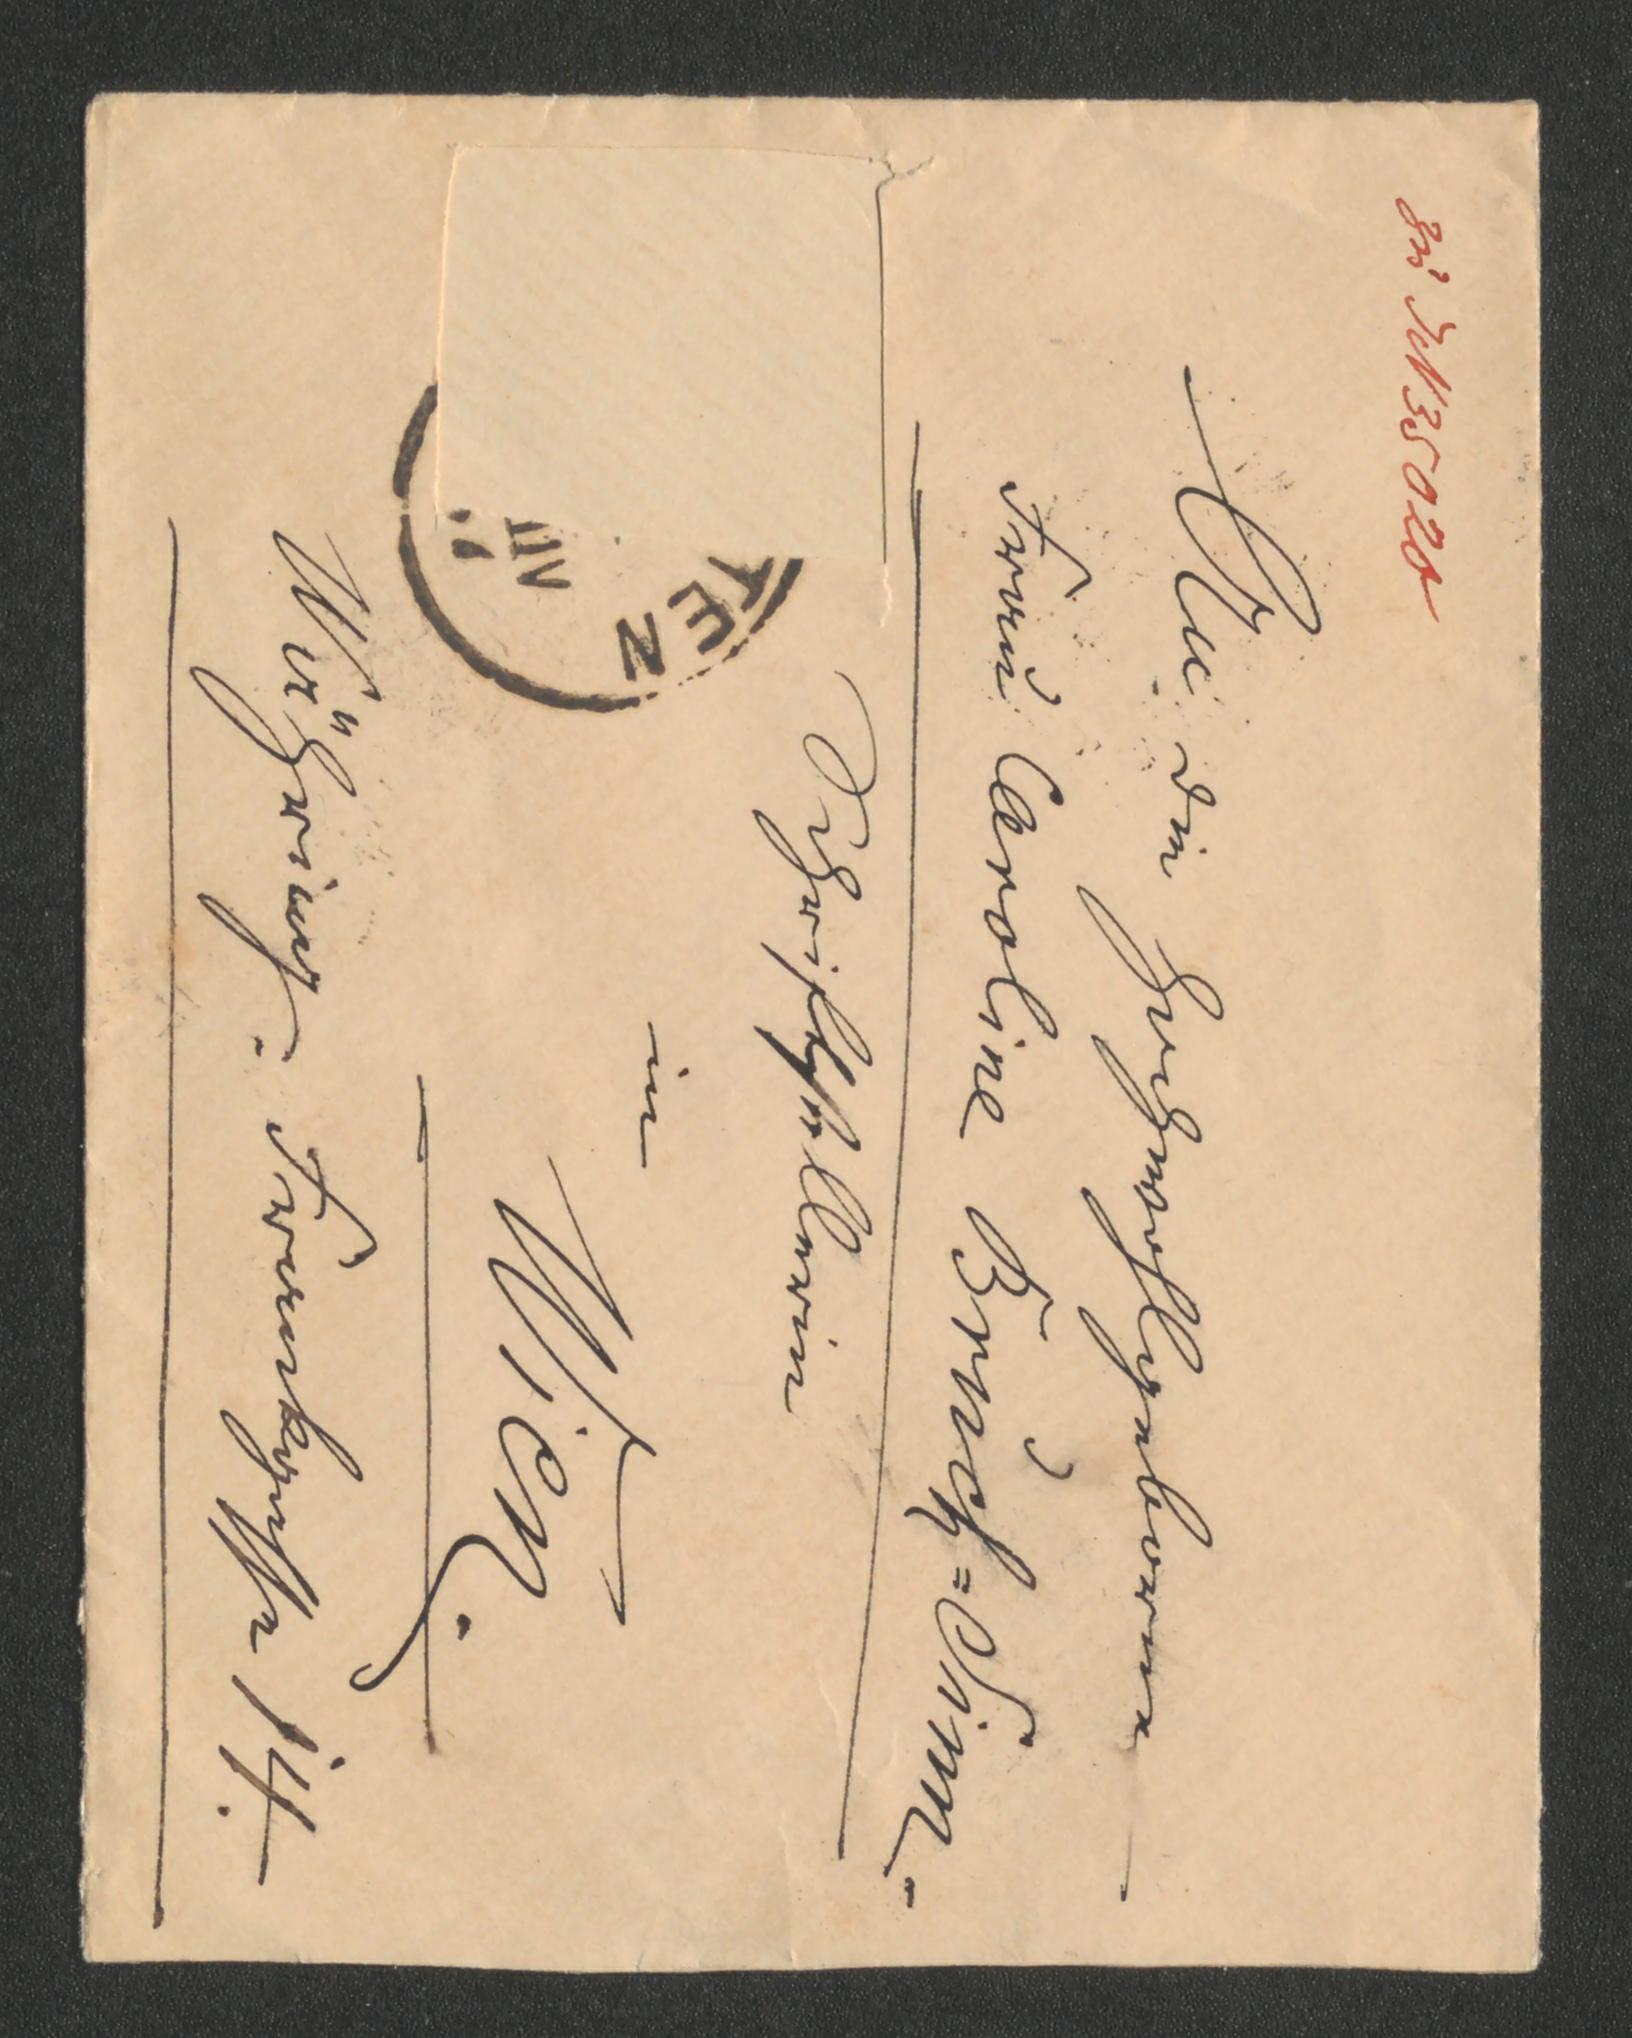 zu IN 35020
An die hochwohlgeborene
Frau Caroline Bruch=Sinn.
Schriftstellerin
in
Wien.
Währing. Frankgasse 14.
TEN
VIII